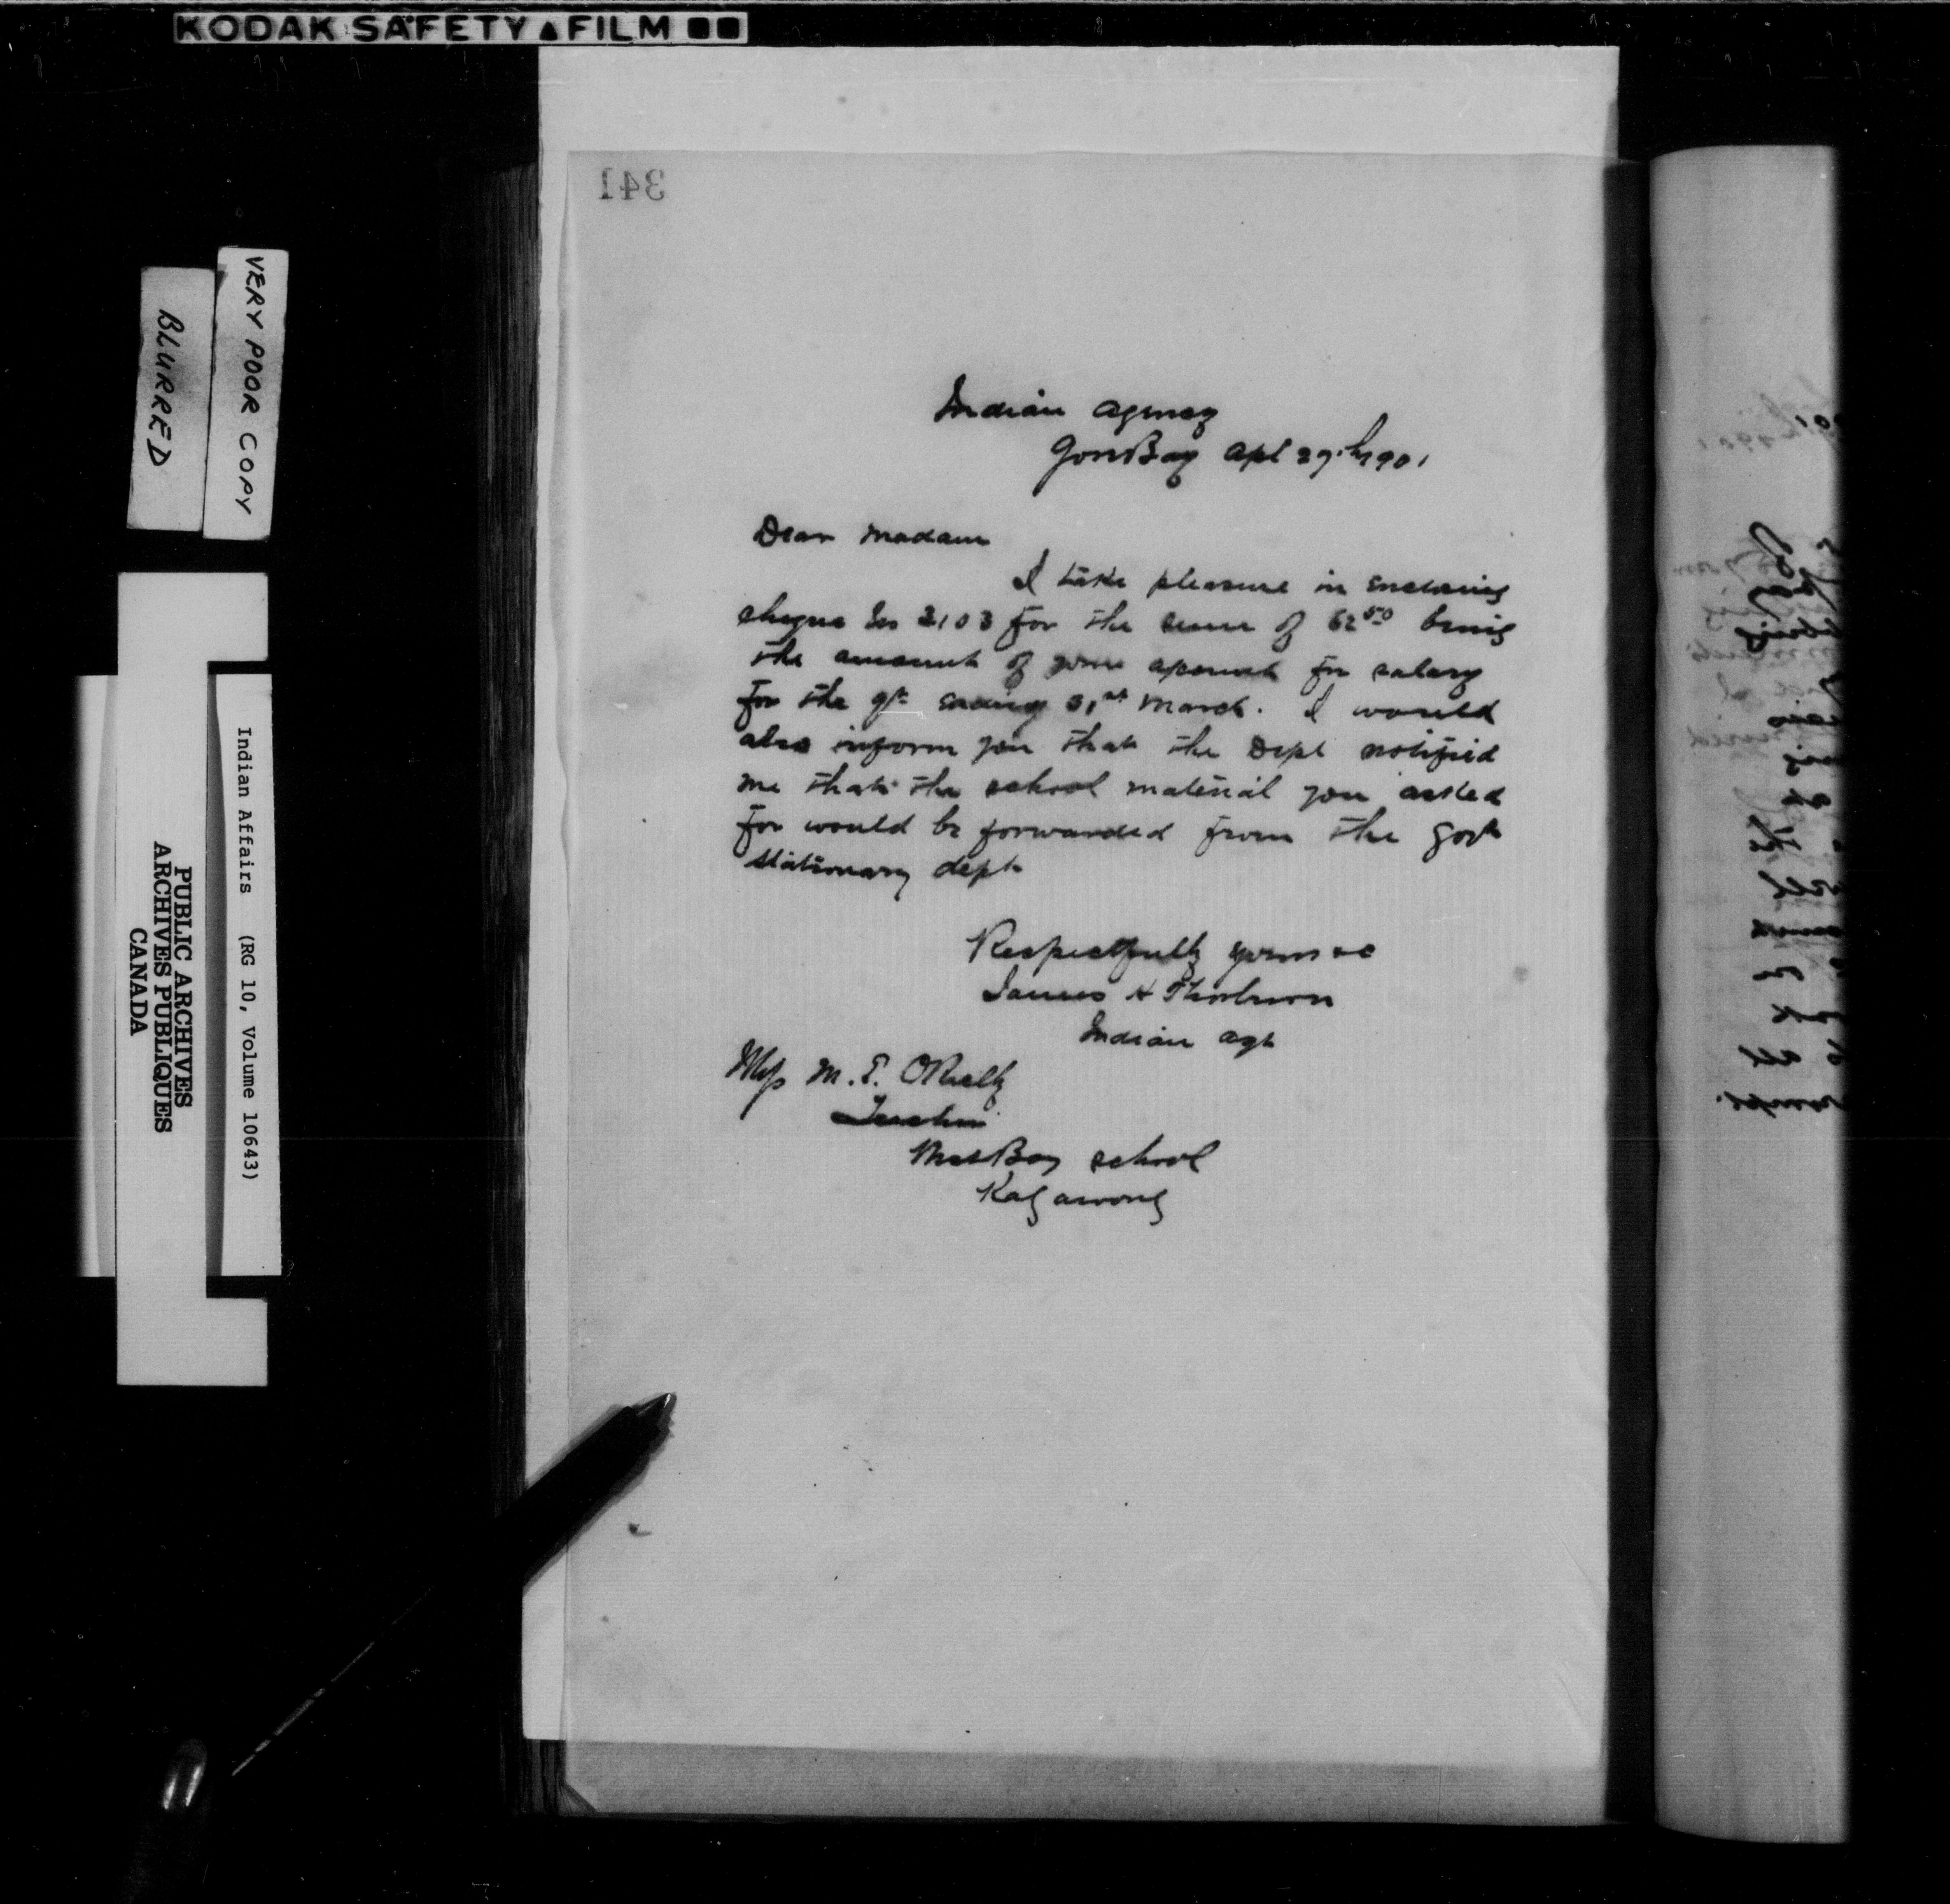 KODAK SAFETY FILM
341
Indian Agency
Gore Bay Apl 29th 1901
Dear Madam
I take pleasure in enclosing
cheque No 3103 for the sum of 62 50 being
the amount of your account for salary
for the qr ending 31st March. I would
also inform you that the Dept notified
me that the school material you asked
for would be forwarded from the Govt
stationary dept
Respectfully yours &c
James H Thorburn
Indian Agt
Miss M. E. OReilly
Teacher
West Bay school
Kagawong
VERY POOR COPY
BLURRED
Indian Affairs (RG 10, Volume 10643)
PUBLIC ARCHIVES
ARCHIVES PUBLIQUES
CANADA